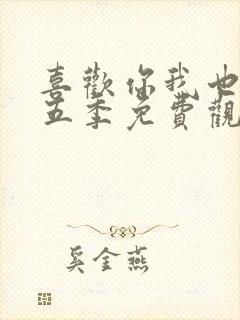 喜歡你我也
五季免費觀
奚金燕